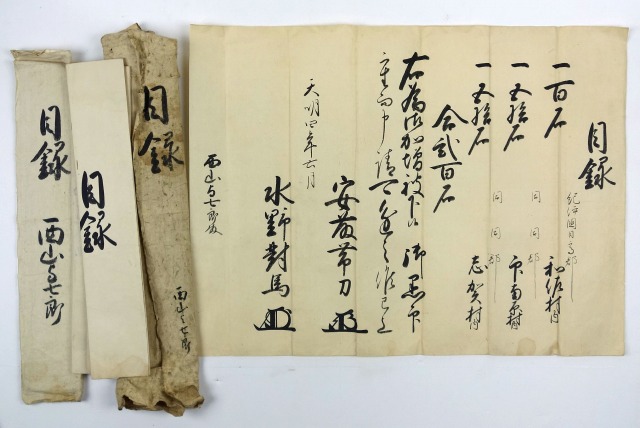 目録
紀伊国日高郡
一百石 和佐村内
同国同郡
一五拾石
同国同郡
一五拾石 志賀村内
合弐百石
右為御加増被下候 御黒印
重而申請可
天明四年六月
安藤帯刀
水野対馬
西山与七郎殿
目録
西山与七郎
目録
目録
西山与七郎